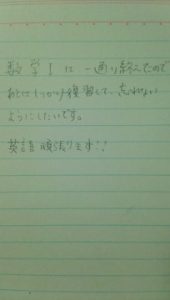 数学Iは一通り終えたので
あとはしっかり復習して、忘れない
ようにしたいです。
英語頑張ります!!